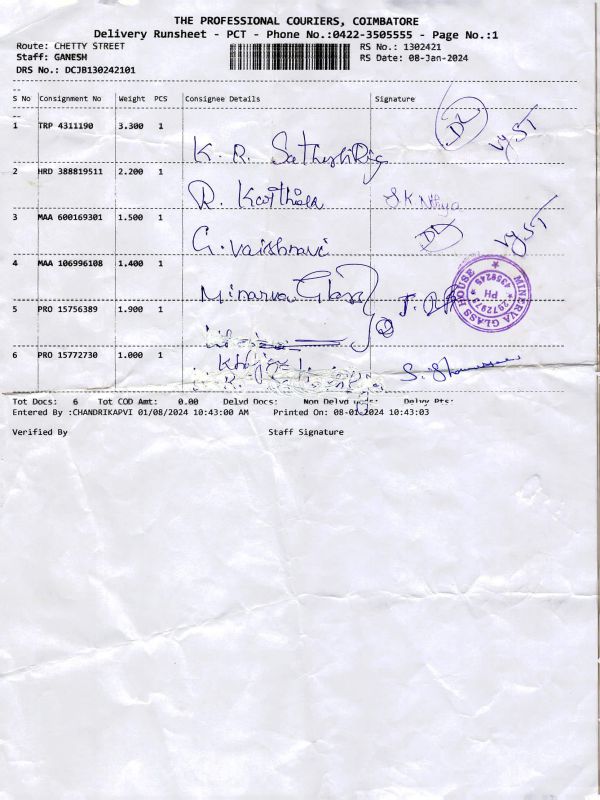 THE PROFESSIONAL COURIERS, COIMBATORE
Delivery Runsheet - PCT - Phone No.:0422-3505555 - Page No.:1
Route: CHETTY STREET RS No.: 1302421
Staff: GANESH RS Date: 08-Jan-2024
DRS No.: DCJB130242101
S No Consignment No Weight PCS Consignee Details Signature
1 TRP 4311190 3.300 1 K. R. DL Vy ST
2 HRD 388819511 2.200 1 R.
3 MAA 600169301 1.500 1 G. Vaishnavi DL Vy ST
4 MAA 106996108 1.400 1 Minarva Glass
MINERVA GLASS HOUSE PH
5 PRO 15756389 1.900 1
6 PRO 15772730 1.000 1 S.
Tot Docs: 6 Tot COD Amt: 0.00 Delvd Docs: Non Delvd
Entered By :CHANDRIKAPVI 01/08/2024 10:43:00 AM Printed On: 08-01-2024 10:43:03
Verified By Staff Signature